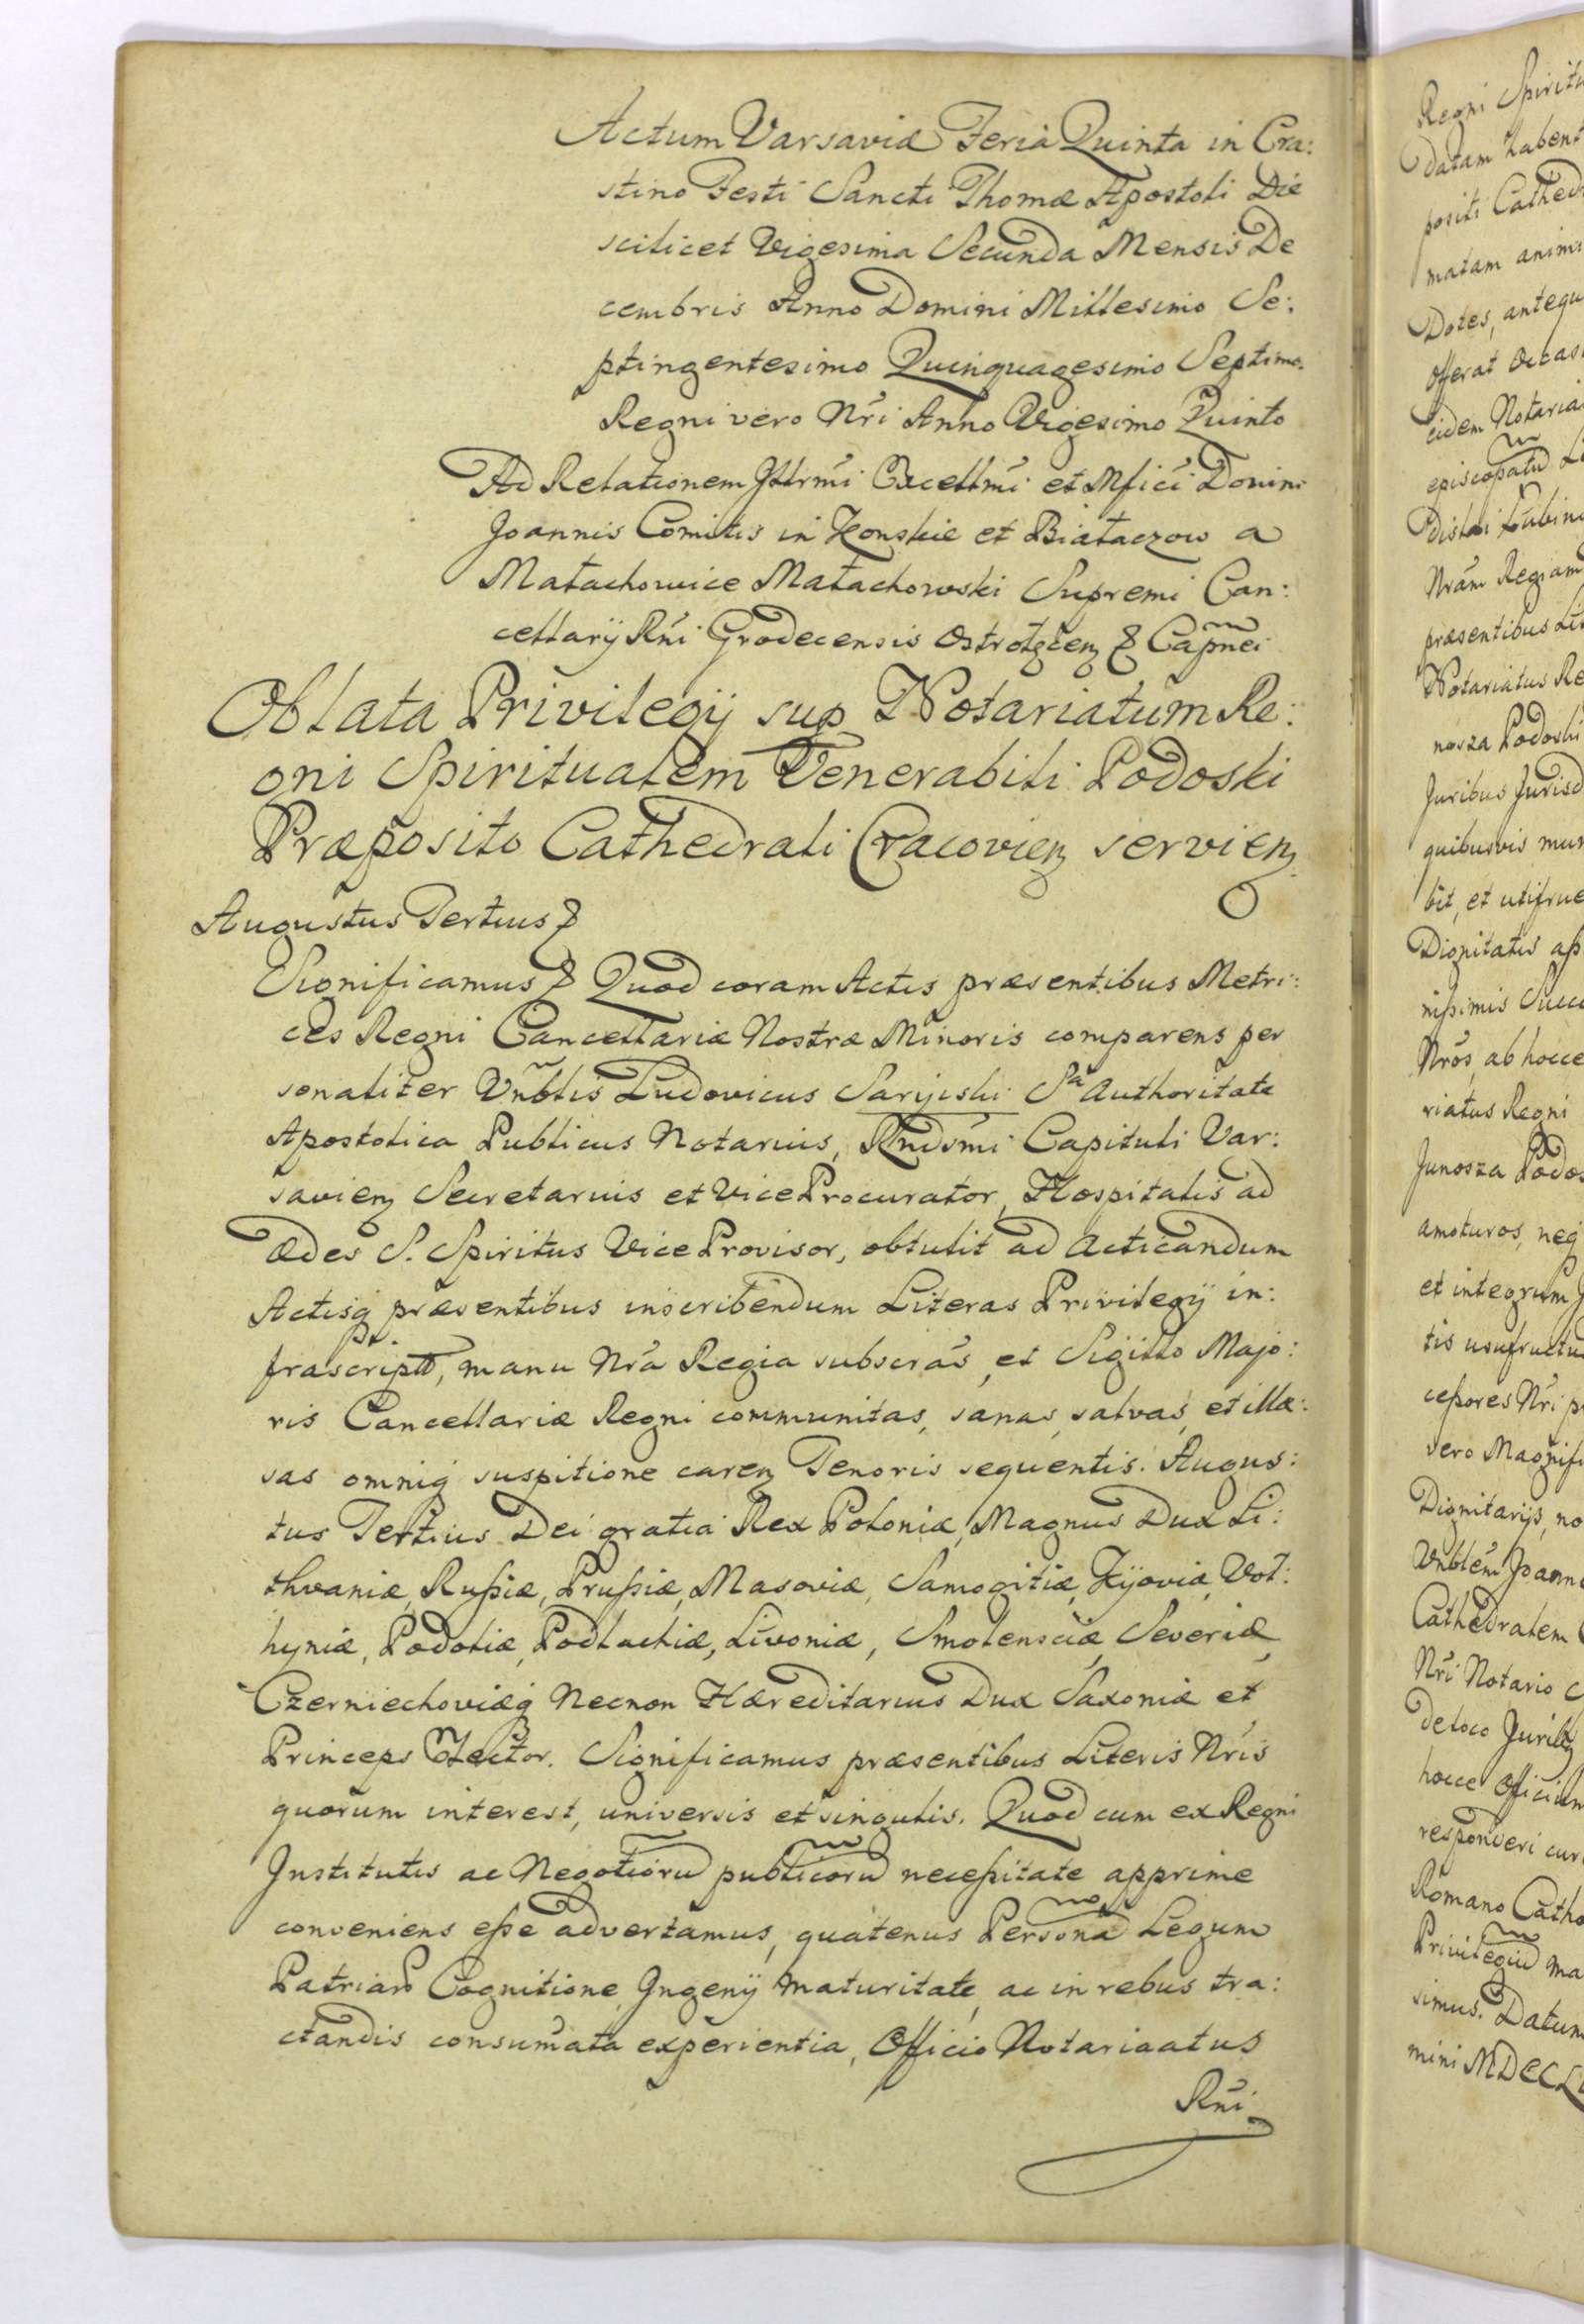 Actum Varsaviæ Feria Quinta in Cra:
stino Festi Sancti Thomæ Apostoli Die
scilicet Vigesima Secunda Mensis De
cembris Anno Domini Millesimo Se:
ptingentesimo Quinquagesimo Septimo.
Regni vero Nri Anno Vigesimo Quinto
Ad Relationem Illrmi Excellmi et Mfici Domini
Joannis Comitis in Konskie et Białaczow a
Małachowice Małachowski Supremi Can:
cellarij Rni Grodecensis Ostrołęcen & Capnei
Oblata Privilegij sup Notariatum Re:
gni Spiritualem Venerabili Podoski
Præposito Cathedrali Cracovien servien
Augustus Tertius &
Significamus & Quod coram Actis præsentibus Metri:
ces Regni Cancellariæ Nostræ Minoris comparens per
sonaliter Vnblis Ludovicus Saryiski Sa Authoritate
Apostolica Publicus Notarius, Rndsmi Capituli Var:
savien Secretarius et Vice Procurator, Hospitalis ad
Ædes S. Spiritus Vice Provisor, obtulit ad Acticandum
Actisq præsentibus inscribendum Literas Privilegij in:
frascript, manu Nra Regia subscras, et Sigillo Majo:
ris Cancellariæ Regni communitas, sanas, salvas, et illæ:
sas omniq suspitione caren Tenoris sequentis. Augus:
tus Tertius Dei gratia Rex Poloniæ, Magnus Dux Li:
thvaniæ, Rußiæ, Prußiæ, Masoviæ, Samogitiæ, Kijoviæ, Vol:
hyniæ, Podoliæ, Podlachiæ, Livoniæ, Smolensciæ, Severiæ,
Czerniechoviæq Necnon Hæreditarius Dux Saxoniæ et
Princeps Elector. Significamus præsentibus Literis Nris
quorum interest, universis et singulis. Quod cum ex Regni
Institutis ac Negotioru publicoru neceßitate apprime
conveniens eße advertamus, quatenus Persona Legum
Patriar Cognitione, Ingenij maturitate, ac in rebus tra:
ctandis consumata experientia, Officio Notariaatus
Rni
Regni Spiritu
datam habent
positi Cathed
matam animi
Dotes, antequ
Offerat occasi
eidem Notaria
episcopatu
Nram Regiam
præsentibus Lit
Notariatus Re
nosza Podoski
Juribus Jurisd
quibusvis mun
bit, et utifrue
Dignitatis
nißimis Succ
Nros, ab hocce
riatus Regni
Junosza Podos
amoturos, neq
et integrum
tis usufructu
ceßores Nri
vero Magnifi
Dignitarijs, no
Vnblem Joann
Cathedralem
Nri Notario
de loco
hocce Officiu
responderi cur
Romano Catho
Privilegiu ma
simus. Datum
mini MDCCL